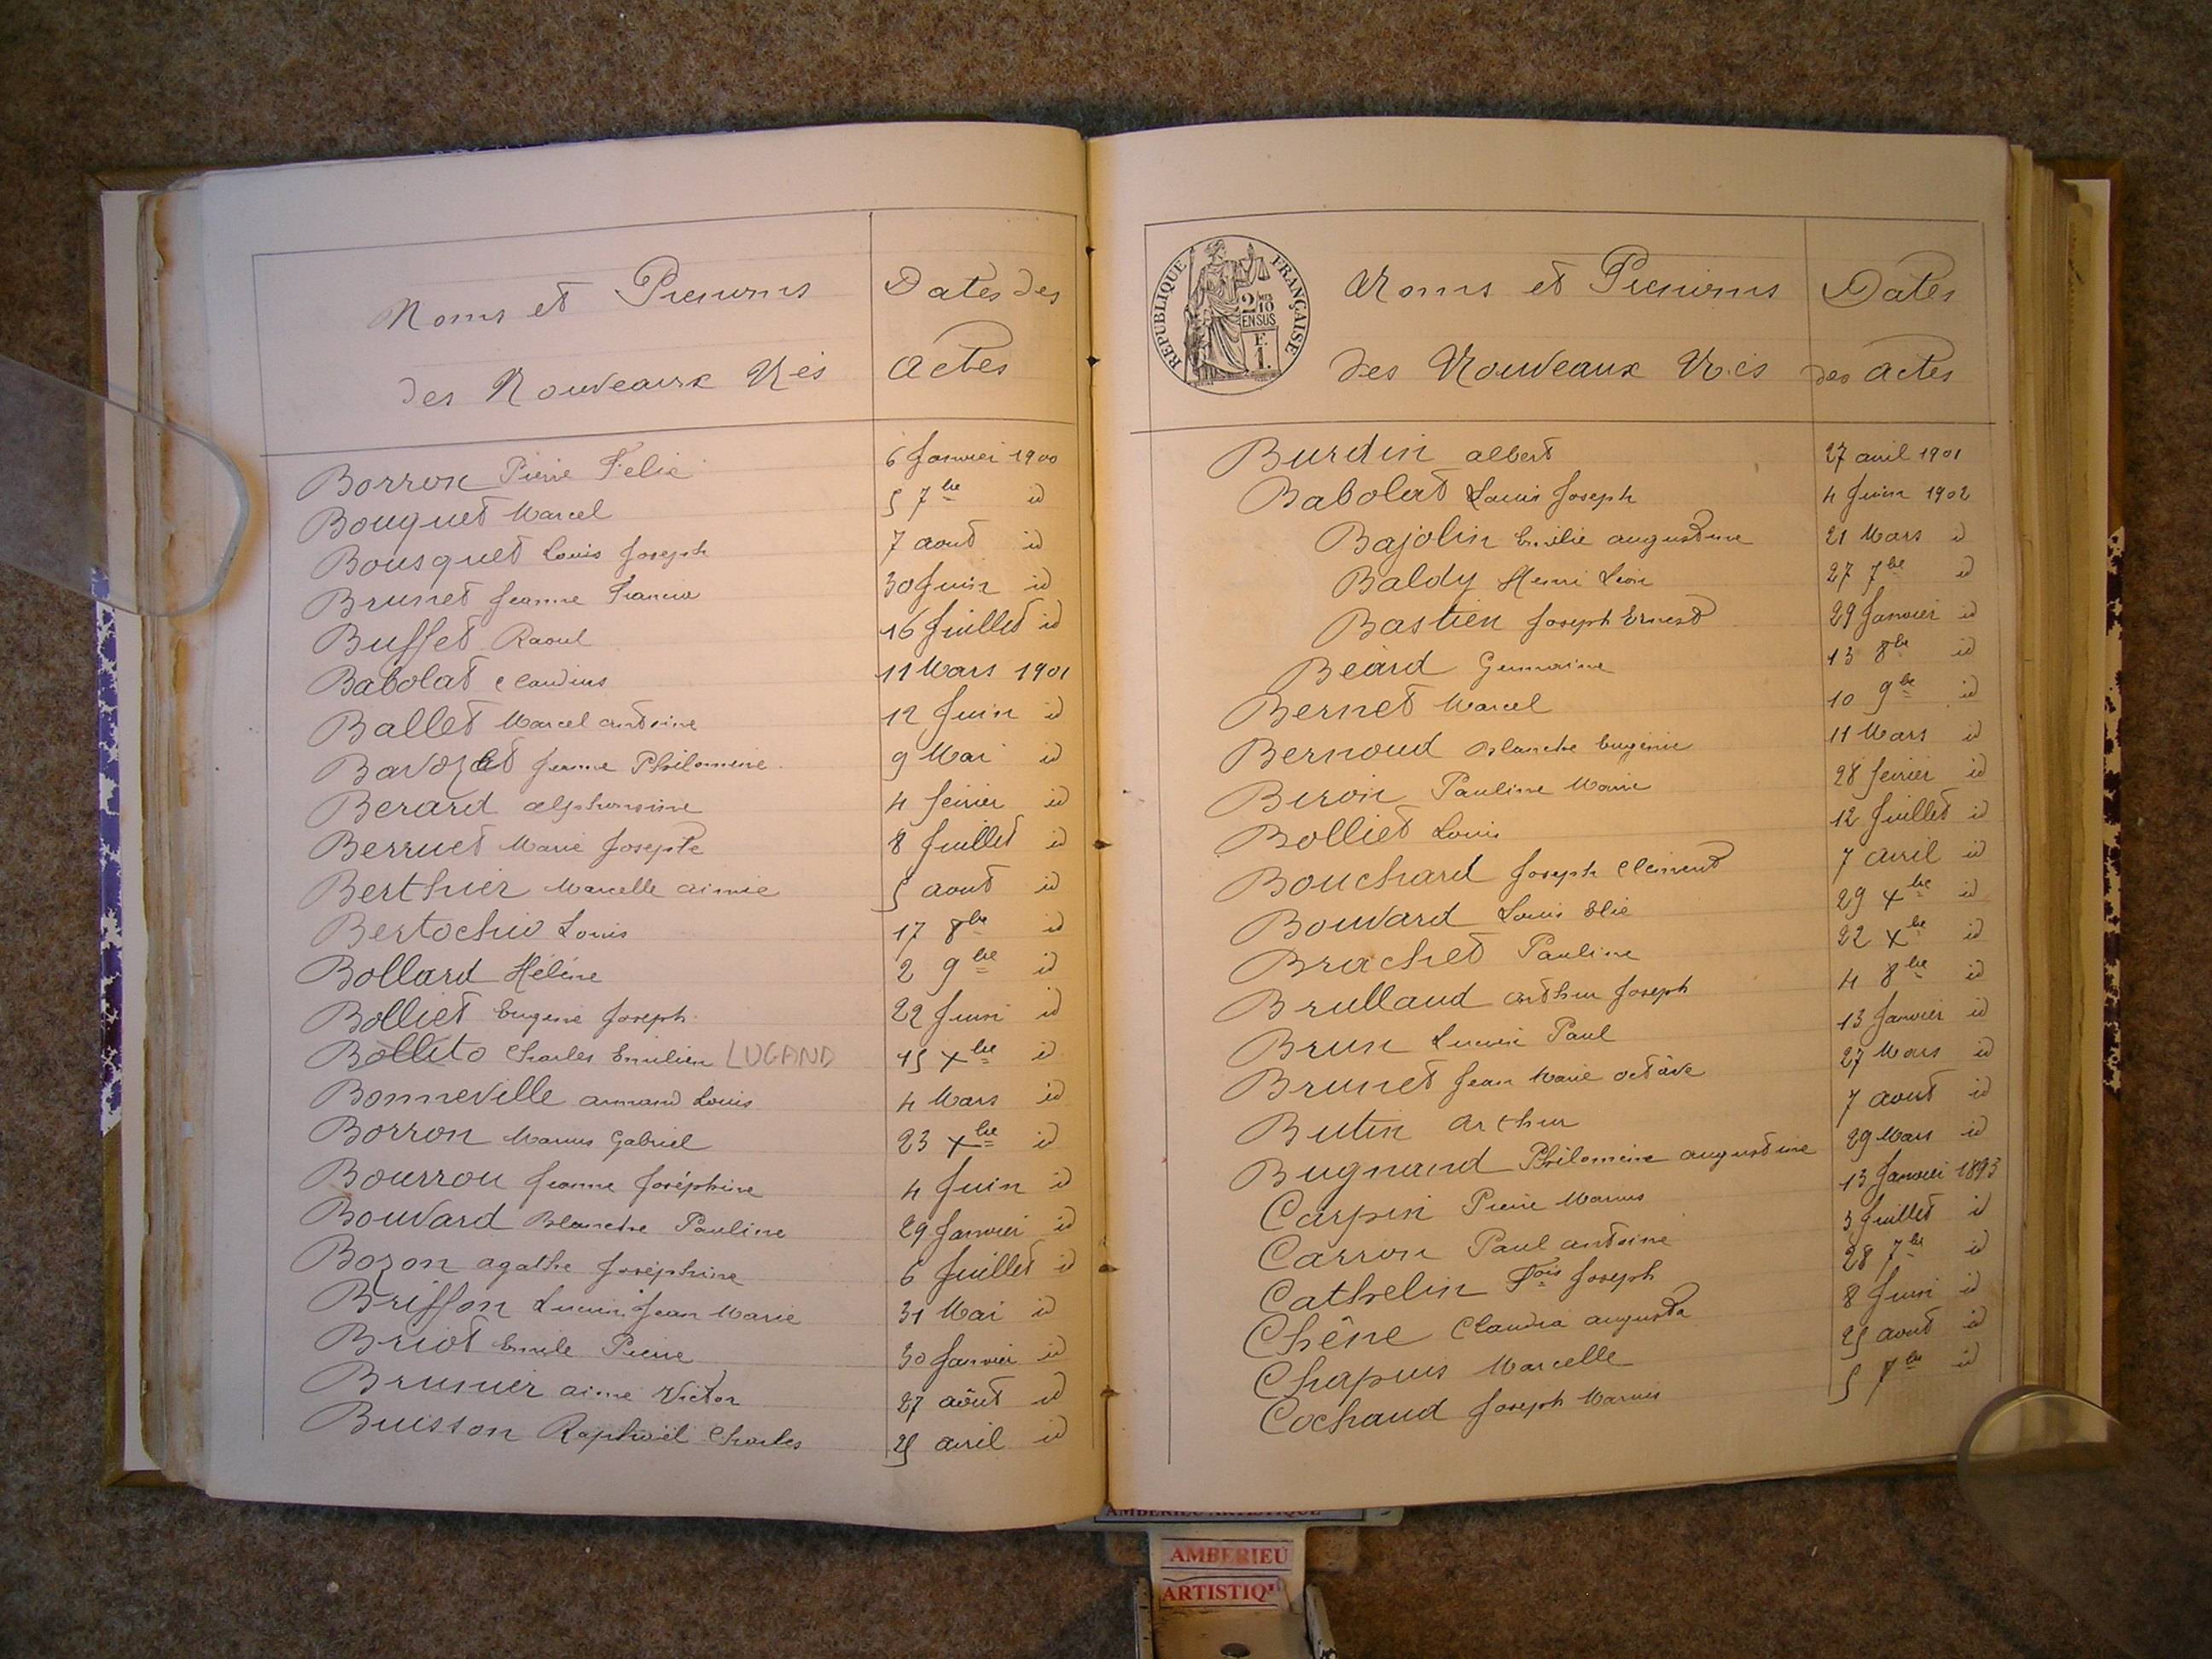 Noms et Prenoms
des Nouveaux Nés
Dates des
Actes
Borron Pierre Felix 6 Janvier 1900
Bouquet Marcel 5 7bre id
Bousquet Louis Joseph 7 aout id
Brunet Jeanne Francia 30 Juin id
Buffet Raoul 16 Juillet id
Babolat Claudius 11 Mars 1901
Ballet Marcel antoine 12 Juin id
Bavozet Jeanne Philomène 9 Mai id
Berard alphonsine 4 fevier id
Berruet Marie Josepte 8 Juillet id
Berthier Marcelle aimée 5 aout id
Bertochio Louis 17 8bre id
Bollard Hélène 2 9bre id
Bolliet Eugene Joseph 22 Juin id
Bollito Charles Emilien LUGAND 15 Xbre id
Bonneville armand Louis 4 Mars id
Borron Marius Gabriel 23 Xbre id
Bourrou Jeanne Joséphine 4 Juin id
Bouvard Blanche Pauline 29 Janvier id
Bozon agathe Joséphine 6 Juillet id
Briffon Lucien Jean Marie 31 Mai id
Briot Emile Pierre 30 Janvier id
Brunier aimé Victor 27 août id
Buisson Raphaël Charles 25 avril id
REPUBLIQUE FRANÇAISE
2/10
EN SUS
F.
1.
Noms et Prenoms
des Nouveaux Nés
Dates
des actes
Burdin albert 27 avril 1901
Babolat Louis Joseph 4 Juin 1902
Bajolin Emilie augustine 21 Mars id
Baldy Henri Léon 27 7bre id
Bastien Joseph Ernest 29 Janvier id
Béard Germaine 13 8bre id
Bernet Marcel 10 9bre id
Bernoud Blanche Eugénie 11 Mars id
Biron Pauline Marie 28 fevier id
Bolliet Louis 12 Juillet id
Bouchard Joseph Clement 7 avril id
Bouvard Louis Elie 29 Xbre id
Brachet Pauline 22 Xbre id
Brulland arthur Joseph 4 8bre id
Brun Lucien Paul 13 Janvier id
Brunet Jean Marie octave 27 Mars id
Butin arthur 7 aout id
Bugnand Philomène augustine 29 Mars id
Carpin Pierre Marius 13 Janvier 1893
Carron Paul antoine 3 Juillet id
Cathelin Fois Joseph 28 7bre id
Chêne Claudia augusta 8 Juin id
Chapuis Marcelle 25 aout id
Cochaud Joseph Marius 5 7bre id
AMBERIEU ARTISTIQUE
AMBERIEU
ARTISTIQ